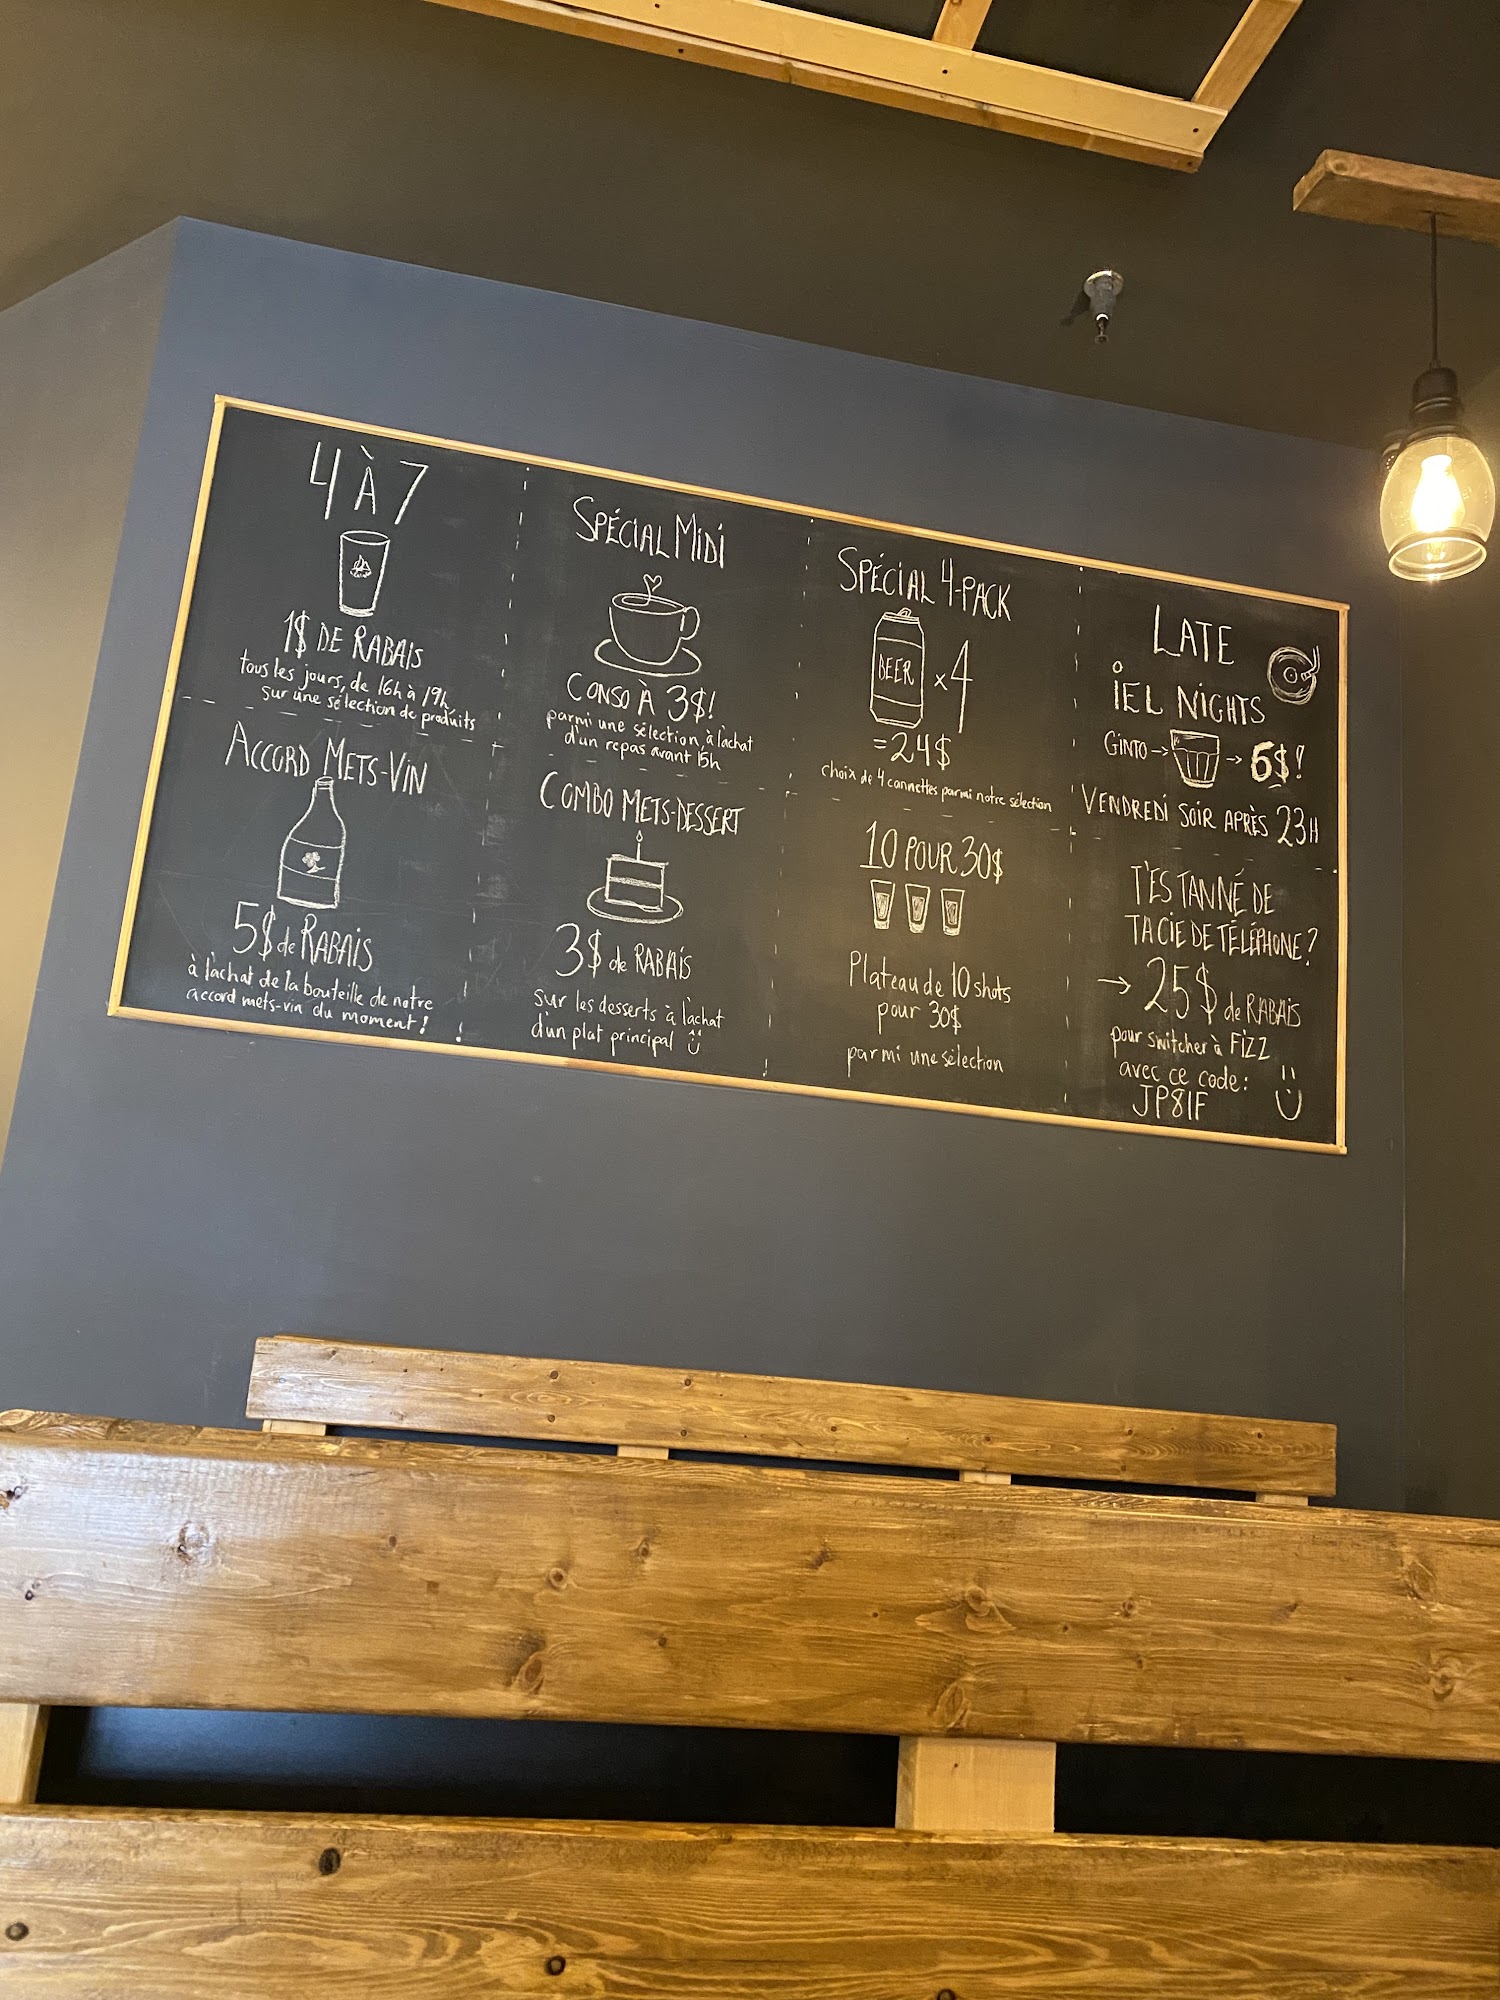 4 À 7
1$ DE RABAIS
tous les jours, de 16h à 19h,
sur une sélection de produits
ACCORD METS-VIN
5$ de RABAIS
à l'achat de la bouteille de notre
accord mets-vin du moment!
SPÉCIAL MIDI
CONSO À 3$!
parmi une sélection, à l'achat
d'un repas avant 15h
COMBO METS-DESSERT
3$ de RABAIS
sur les desserts à l'achat
d'un plat principal
SPÉCIAL 4-PACK
BEER x4
=24$
choix de 4 cannettes parmi notre sélection
10 POUR 30$
Plateau de 10 shots
pour 30$
parmi une sélection
LATE
iEL NIGHTS
GINTO → → 6$!
VENDREDI SOIR APRÈS 23H
T'ES TANNÉ DE
TA CIE DE TÉLÉPHONE?
→ 25$ de RABAIS
pour switcher à FIZZ
avec ce code:
JP81F